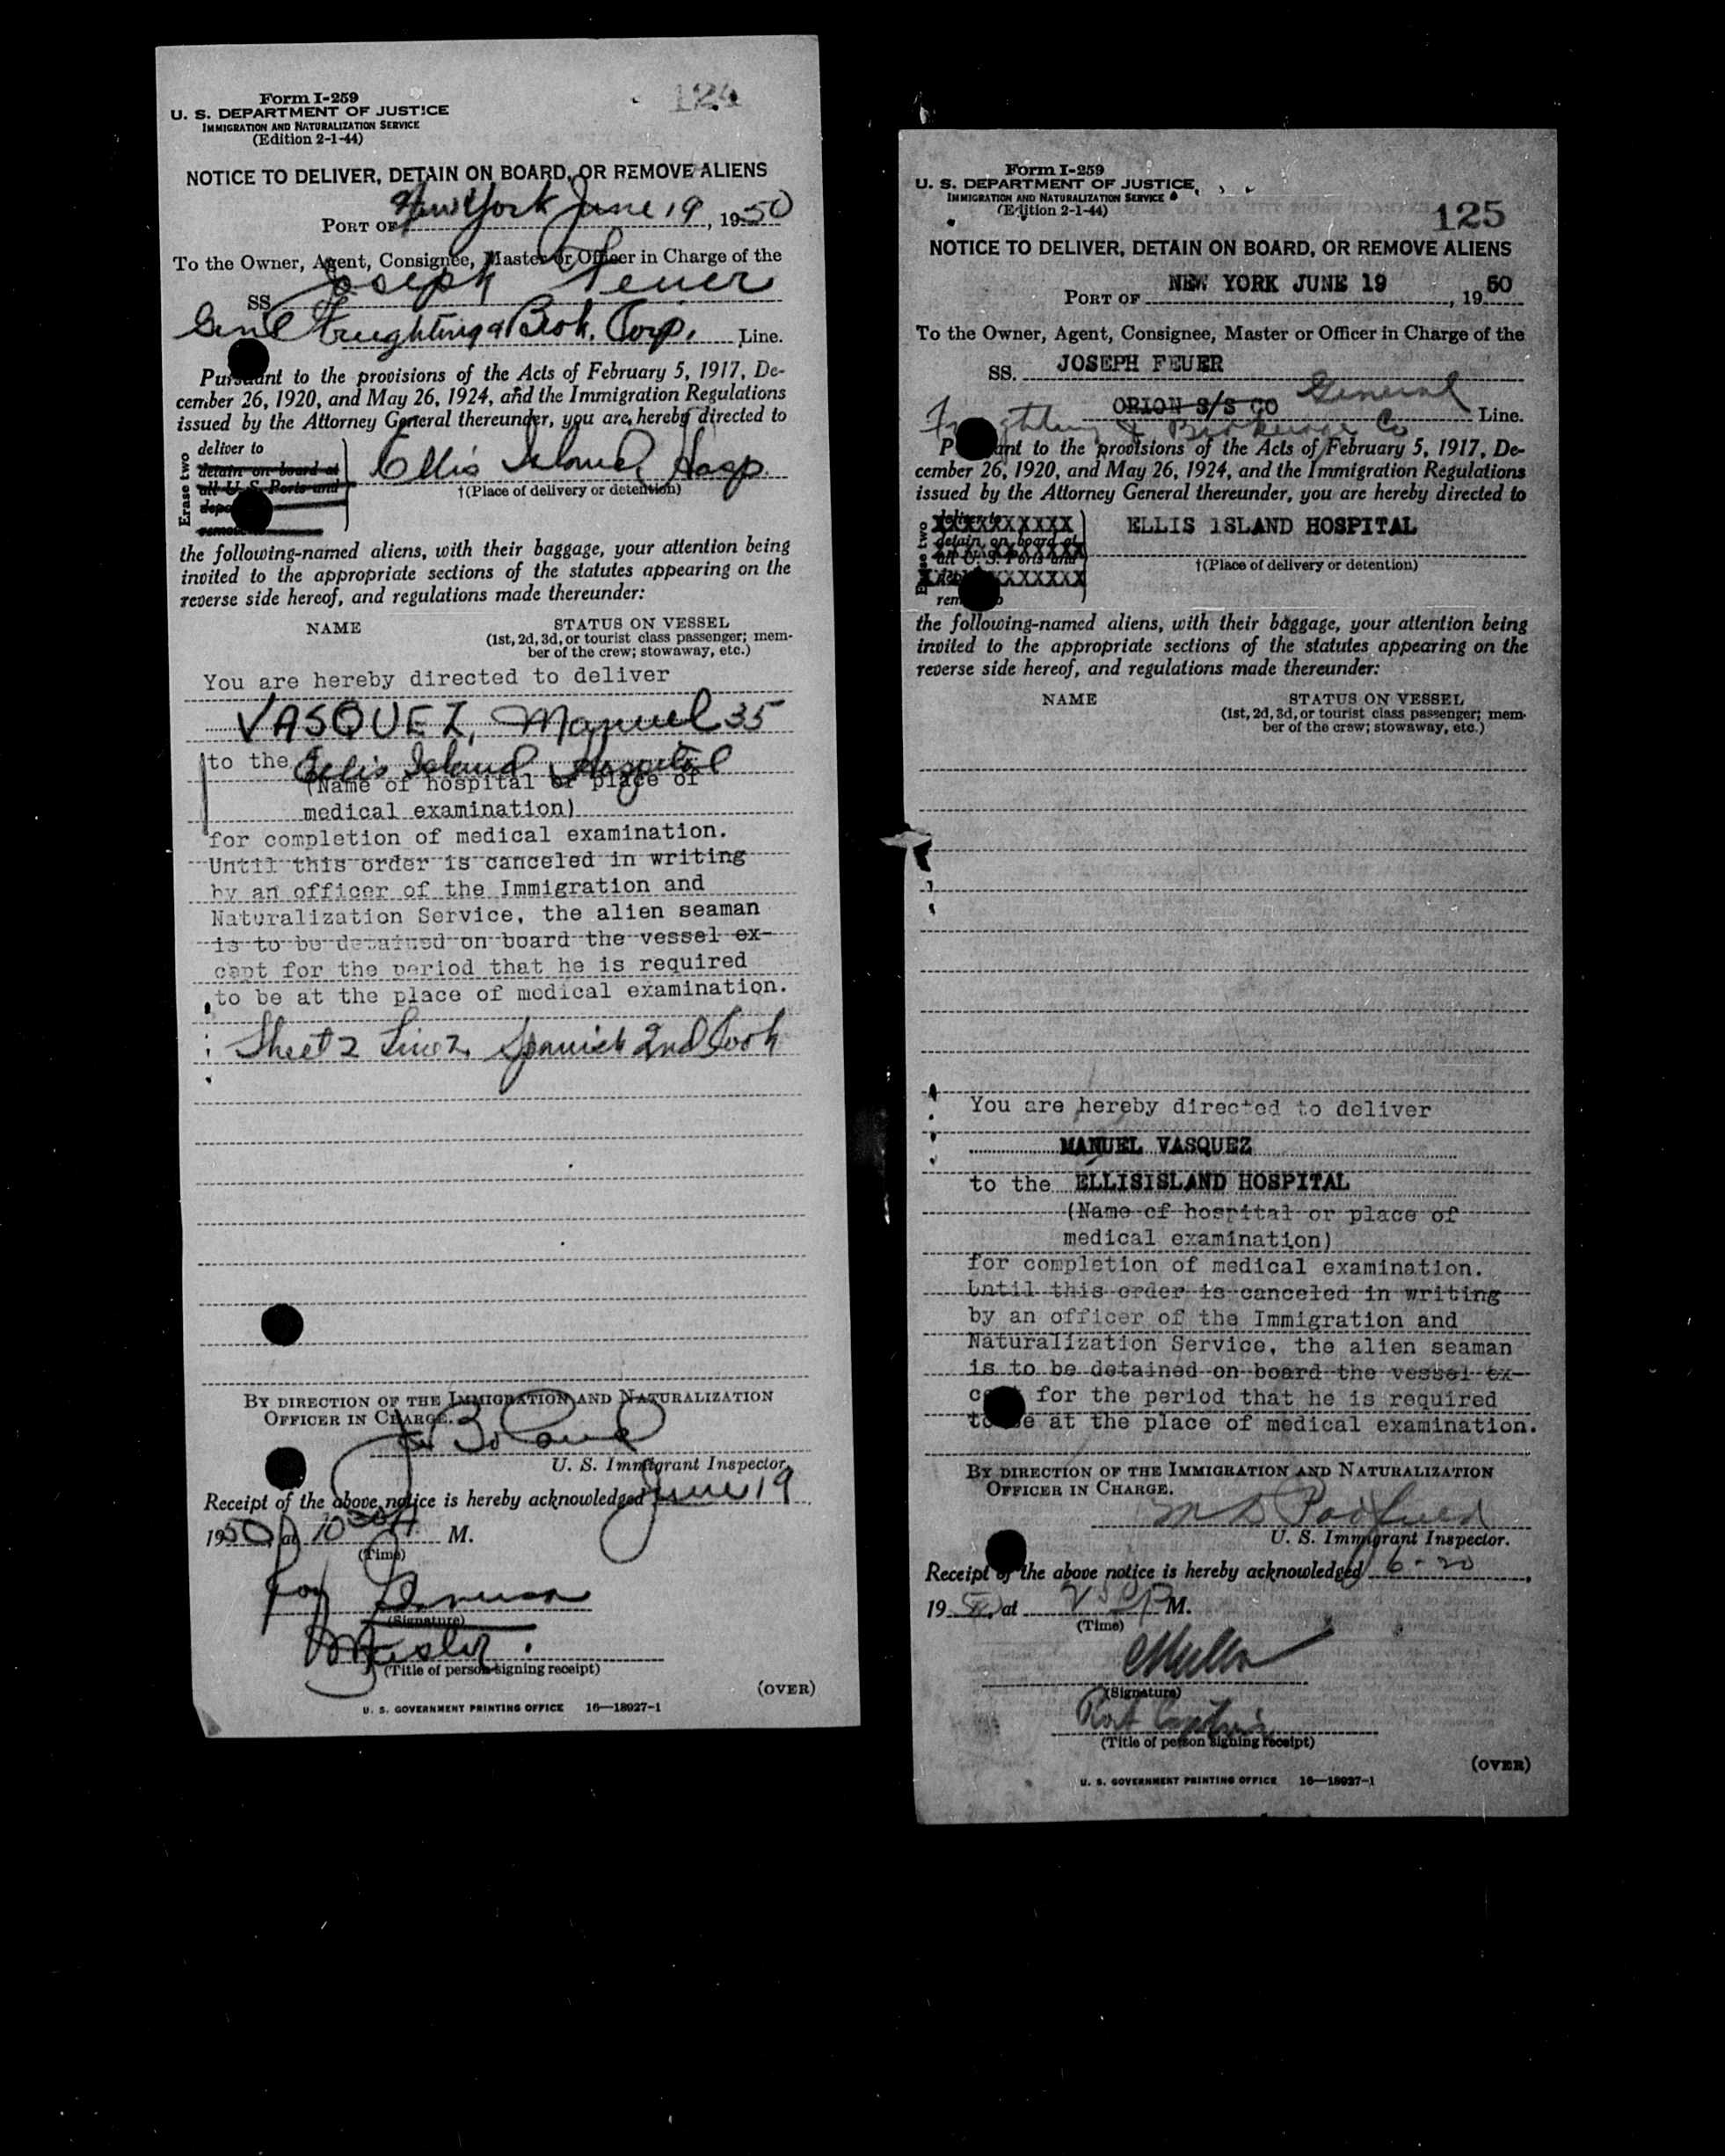 Form I-259
U. S. DEPARTMENT OF JUSTICE
IMMIGRATION AND NATURALIZATION SERVICE
(Edition 2-1-44)
124
NOTICE TO DELIVER, DETAIN ON BOARD, OR REMOVE ALIENS
PORT OF New York June 19, 1950
To the Owner, Agent, Consignee, Master or Officer in Charge of the
SS Joseph Feuer
Genl Freighting & Brok. Corp. Line.
Pursuant to the provisions of the Acts of February 5, 1917, De-
cember 26, 1920, and May 26, 1924, and the Immigration Regulations
issued by the Attorney General thereunder, you are hereby directed to
Erase two
deliver to
detain on board at
all U. S. Ports and
Ellis Island Hosp.
†(Place of delivery or detention)
the following-named aliens, with their baggage, your attention being
invited to the appropriate sections of the statutes appearing on the
reverse side hereof, and regulations made thereunder:
NAME
STATUS ON VESSEL
(1st, 2d, 3d, or tourist class passenger; mem-
ber of the crew; stowaway, etc.)
You are hereby directed to deliver
VASQUEZ, Manuel 35
to the Ellis Island Hospital
(Name of hospital or place of
medical examination)
for completion of medical examination.
Until this order is canceled in writing
by an officer of the Immigration and
Naturalization Service, the alien seaman
is to be detained on board the vessel ex-
cept for the period that he is required
to be at the place of medical examination.
Sheet 2 Line 2 Spanish 2nd Cook
BY DIRECTION OF THE IMMIGRATION AND NATURALIZATION
OFFICER IN CHARGE.
U. S. Immigrant Inspector.
Receipt of the above notice is hereby acknowledged June 19,
1950, at 10 30 A M.
(Time)
(Signature)
Master.
(Title of person signing receipt)
(OVER)
U. S. GOVERNMENT PRINTING OFFICE 16—18927-1
Form I-259
U. S. DEPARTMENT OF JUSTICE
IMMIGRATION AND NATURALIZATION SERVICE
(Edition 2-1-44)
125
NOTICE TO DELIVER, DETAIN ON BOARD, OR REMOVE ALIENS
PORT OF NEW YORK JUNE 19, 1950
To the Owner, Agent, Consignee, Master or Officer in Charge of the
SS. JOSEPH FEUER
ORION S/S CO General Line.
Freighting & Brokerage Co
Pursuant to the provisions of the Acts of February 5, 1917, De-
cember 26, 1920, and May 26, 1924, and the Immigration Regulations
issued by the Attorney General thereunder, you are hereby directed to
Erase two
deliver to
detain on board at
all U. S. Ports and
ELLIS ISLAND HOSPITAL
†(Place of delivery or detention)
the following-named aliens, with their baggage, your attention being
invited to the appropriate sections of the statutes appearing on the
reverse side hereof, and regulations made thereunder:
NAME
STATUS ON VESSEL
(1st, 2d, 3d, or tourist class passenger; mem-
ber of the crew; stowaway, etc.)
You are hereby directed to deliver
MANUEL VASQUEZ
to the ELLISISLAND HOSPITAL
(Name of hospital or place of
medical examination)
for completion of medical examination.
Until this order is canceled in writing
by an officer of the Immigration and
Naturalization Service, the alien seaman
is to be detained on board the vessel ex-
cept for the period that he is required
to be at the place of medical examination.
BY DIRECTION OF THE IMMIGRATION AND NATURALIZATION
OFFICER IN CHARGE.
U. S. Immigrant Inspector.
Receipt of the above notice is hereby acknowledged 6-20,
1950, at M.
(Time)
(Signature)
Port Captain
(Title of person signing receipt)
(OVER)
U. S. GOVERNMENT PRINTING OFFICE 16—18927-1